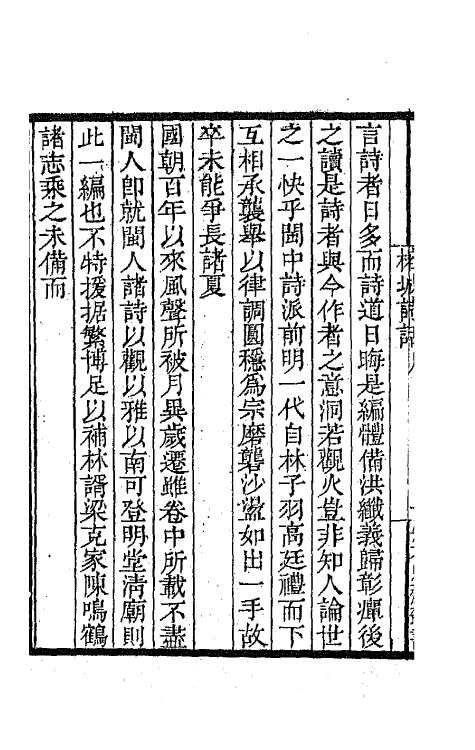 言詩者日多而詩道日晦是編體備洪纖義歸彰癉後
之讀是詩者與今作者之意洞若觀火豈非知人論世
之一快乎閩中詩派前明一代自林子羽高廷禮而下
互相承襲舉以律調圓穩為宗磨礱沙盪如出一手故
卒未能爭長諸夏
國朝百年以來風聲所被月異歲遷雖卷中所載不盡
閩人即就閩人諸詩以觀以雅以南可登明堂清廟則
此一編也不特援据繁博足以補林諝梁克家陳鳴鶴
諸志乘之未備而